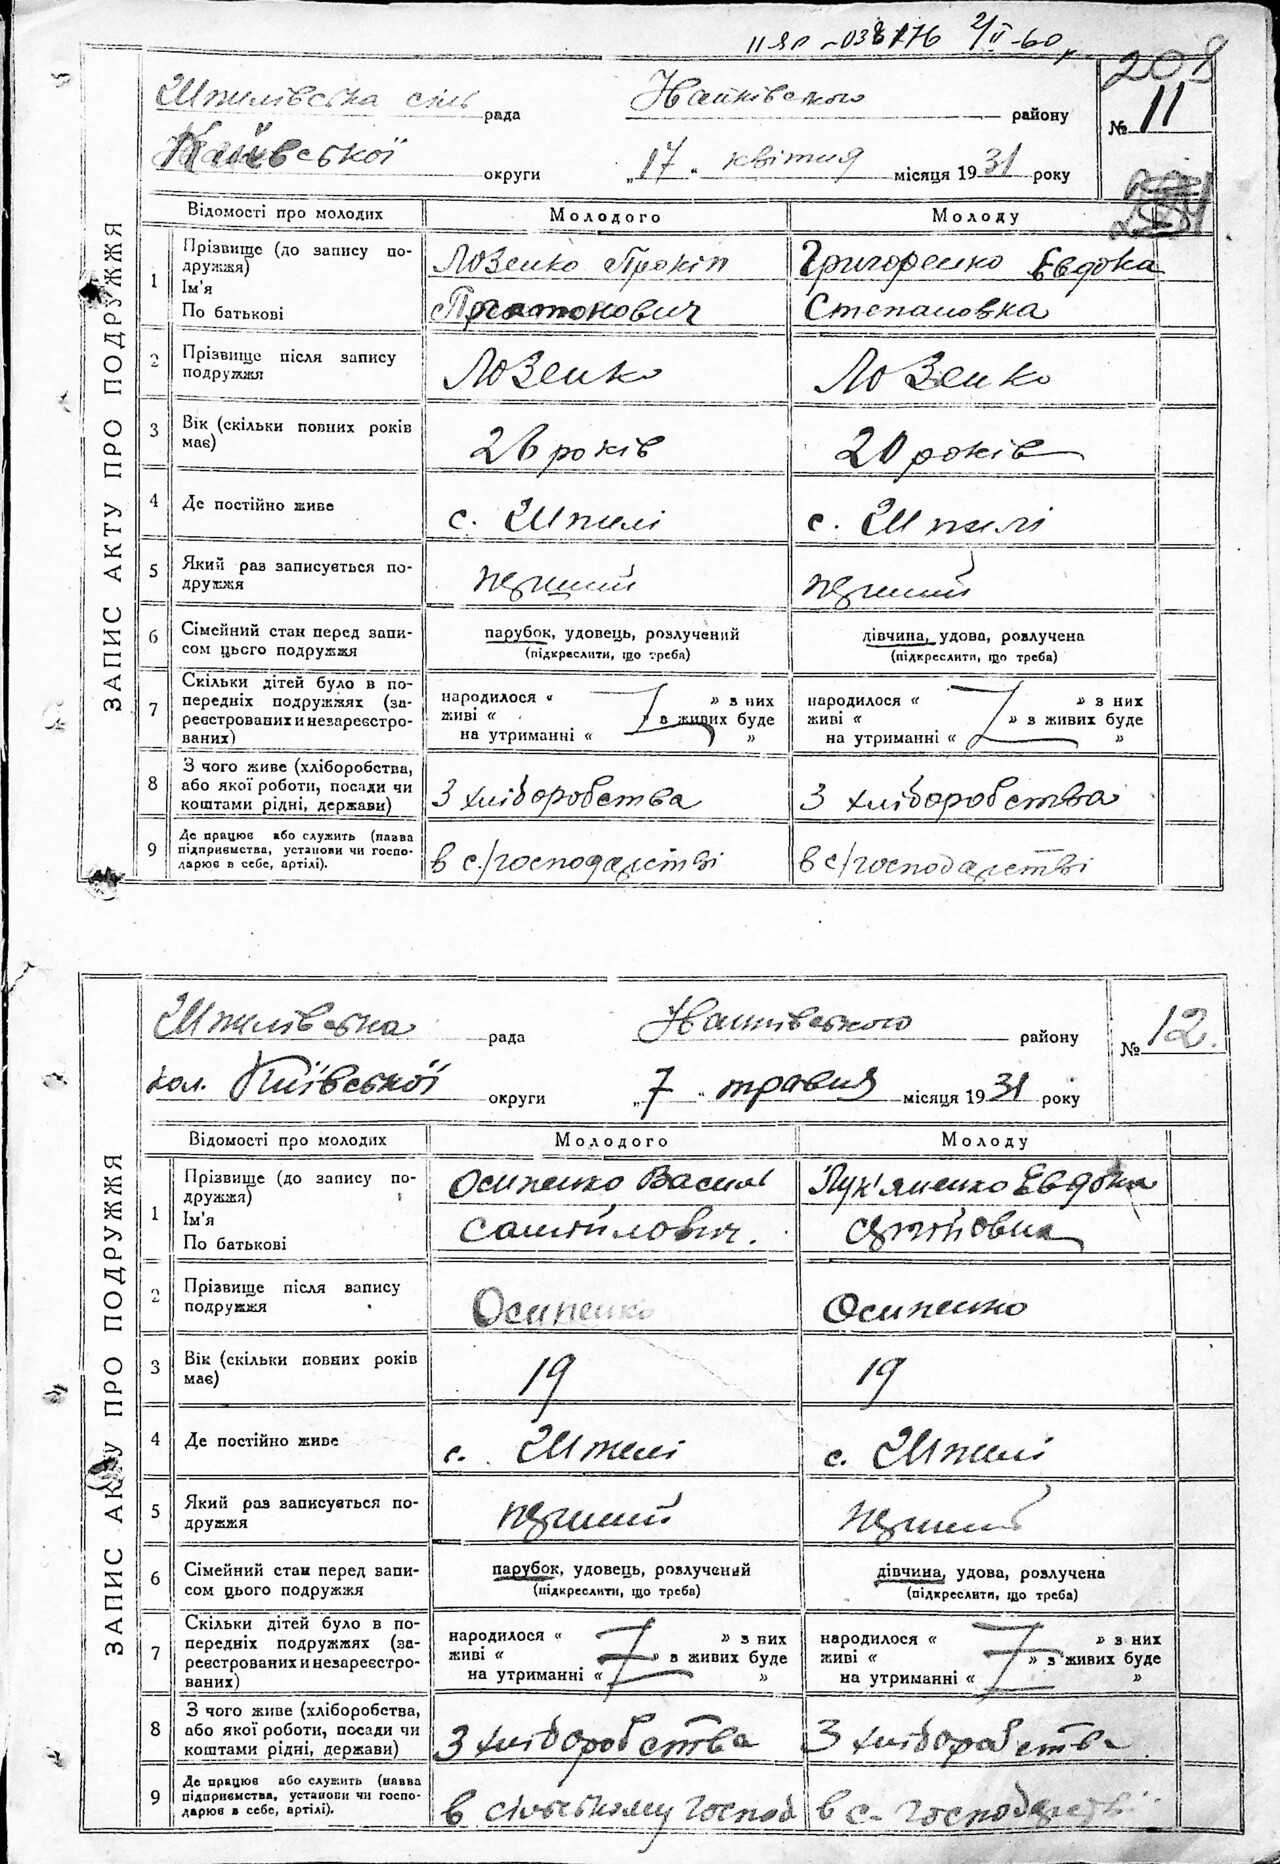 2/ІІ-60
208
Шпилівська сіль рада
Іванківського району
№ 11
Київської округи
„17“ квітня місяця 1931 року
ЗАПИС АКТУ ПРО ПОДРУЖЖЯ
Відомості про молодих
Молодого
Молоду
1
Прізвище (до запису по-
дружжя)
Ім'я
По батькові
Лозенко Прокіп
Платонович
Григоренко Євдока
Степановна
2
Прізвище після запису
подружжя
Лозенко
Лозенко
3
Вік (скільки повних років
має)
26 років
20 років
4
Де постійно живе
с. Шпилі
с. Шпилі
5
Який раз записується по-
дружжя
перший
перший
6
Сімейний стан перед запи-
сом цього подружжя
парубок, удовець, розлучений
(підкреслити, що треба)
дівчина, удова, розлучена
(підкреслити, що треба)
7
Скільки дітей було в по-
передніх подружжях (за-
реєстрованих и незареєстро-
ваних)
народилося « » з них
живі « » в живих буде
на утриманні « »
народилося « » з них
живі « » в живих буде
на утриманні « »
8
З чого живе (хліборобства,
або якої роботи, посади чи
коштами рідні, держави)
З хліборобства
З хліборобства
9
Де працює або служить (назва
підприємства, установи чи госпо-
дарює в себе, артілі).
в с/господарстві
в с/господарстві
Шпилівська рада
Іванківського району
№ 12.
Київської округи
„7“ травня місяця 1931 року
ЗАПИС АКТУ ПРО ПОДРУЖЖЯ
Відомості про молодих
Молодого
Молоду
1
Прізвище (до запису по-
дружжя)
Ім'я
По батькові
Осипенко Василь
Самійлович.
Лук'яненко Євдока
2
Прізвище після запису
подружжя
Осипенко
Осипенко
3
Вік (скільки повних років
має)
19
19
4
Де постійно живе
с. Шпилі
с. Шпилі
5
Який раз записується по-
дружжя
перший
перший
6
Сімейний стан перед запи-
сом цього подружжя
парубок, удовець, розлучений
(підкреслити, що треба)
дівчина, удова, розлучена
(підкреслити, що треба)
7
Скільки дітей було в по-
передніх подружжях (за-
реєстрованих и незареєстро-
ваних)
народилося « » з них
живі « » в живих буде
на утриманні « »
народилося « » з них
живі « » в живих буде
на утриманні « »
8
З чого живе (хліборобства,
або якої роботи, посади чи
коштами рідні, держави)
З хліборобства
З хліборобства
9
Де працює або служить (назва
підприємства, установи чи госпо-
дарює в себе, артілі).
в сільському господ
в с-господарстві